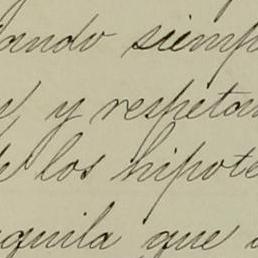 ando siemp
y respeta
de los hipote
quila que